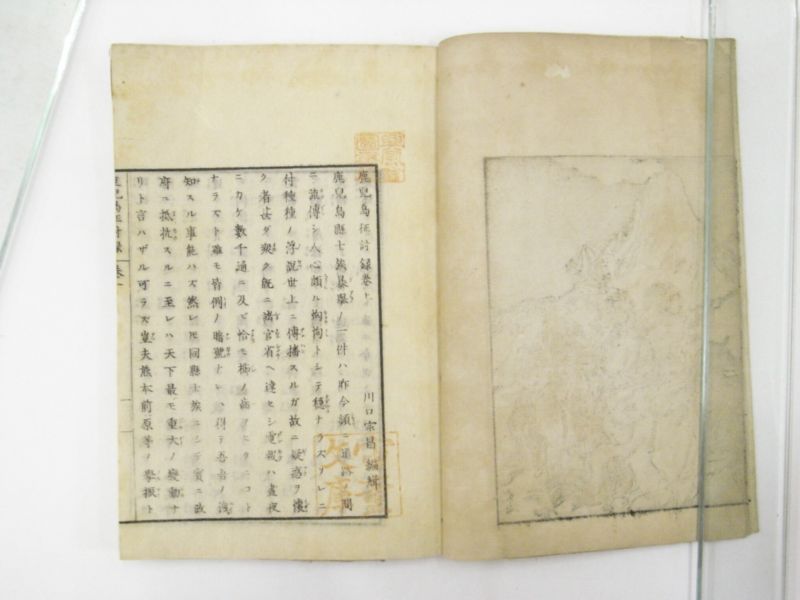 鹿児島征討録巻上
川口宗昌 編輯
鹿児島縣士族暴擧ノ一件ハ昨今頻ニ道路ノ間
ニ流傳シ人心頗ル恟恟トシテ穏ナラズ
付種種ノ浮説世上ニ傳播スルガ故ニ疑惑ヲ懐
ク者甚ダ衆ク既ニ諸官省ヘ達セシ電報ハ晝夜
ニカケ數千通ニ及ビ恰モ櫛ノ歯ヲ
ナラズト雖モ皆例ノ暗號ナレバ得テ吾者ノ
知スル事能ハズ然レ𪜈同縣士族ニシテ實ニ政
府ニ抵抗スルニ至レバ天下最モ重大ノ變動ナ
リト言ハザル可ラズ豈夫熊本前原等ノ擧動ト